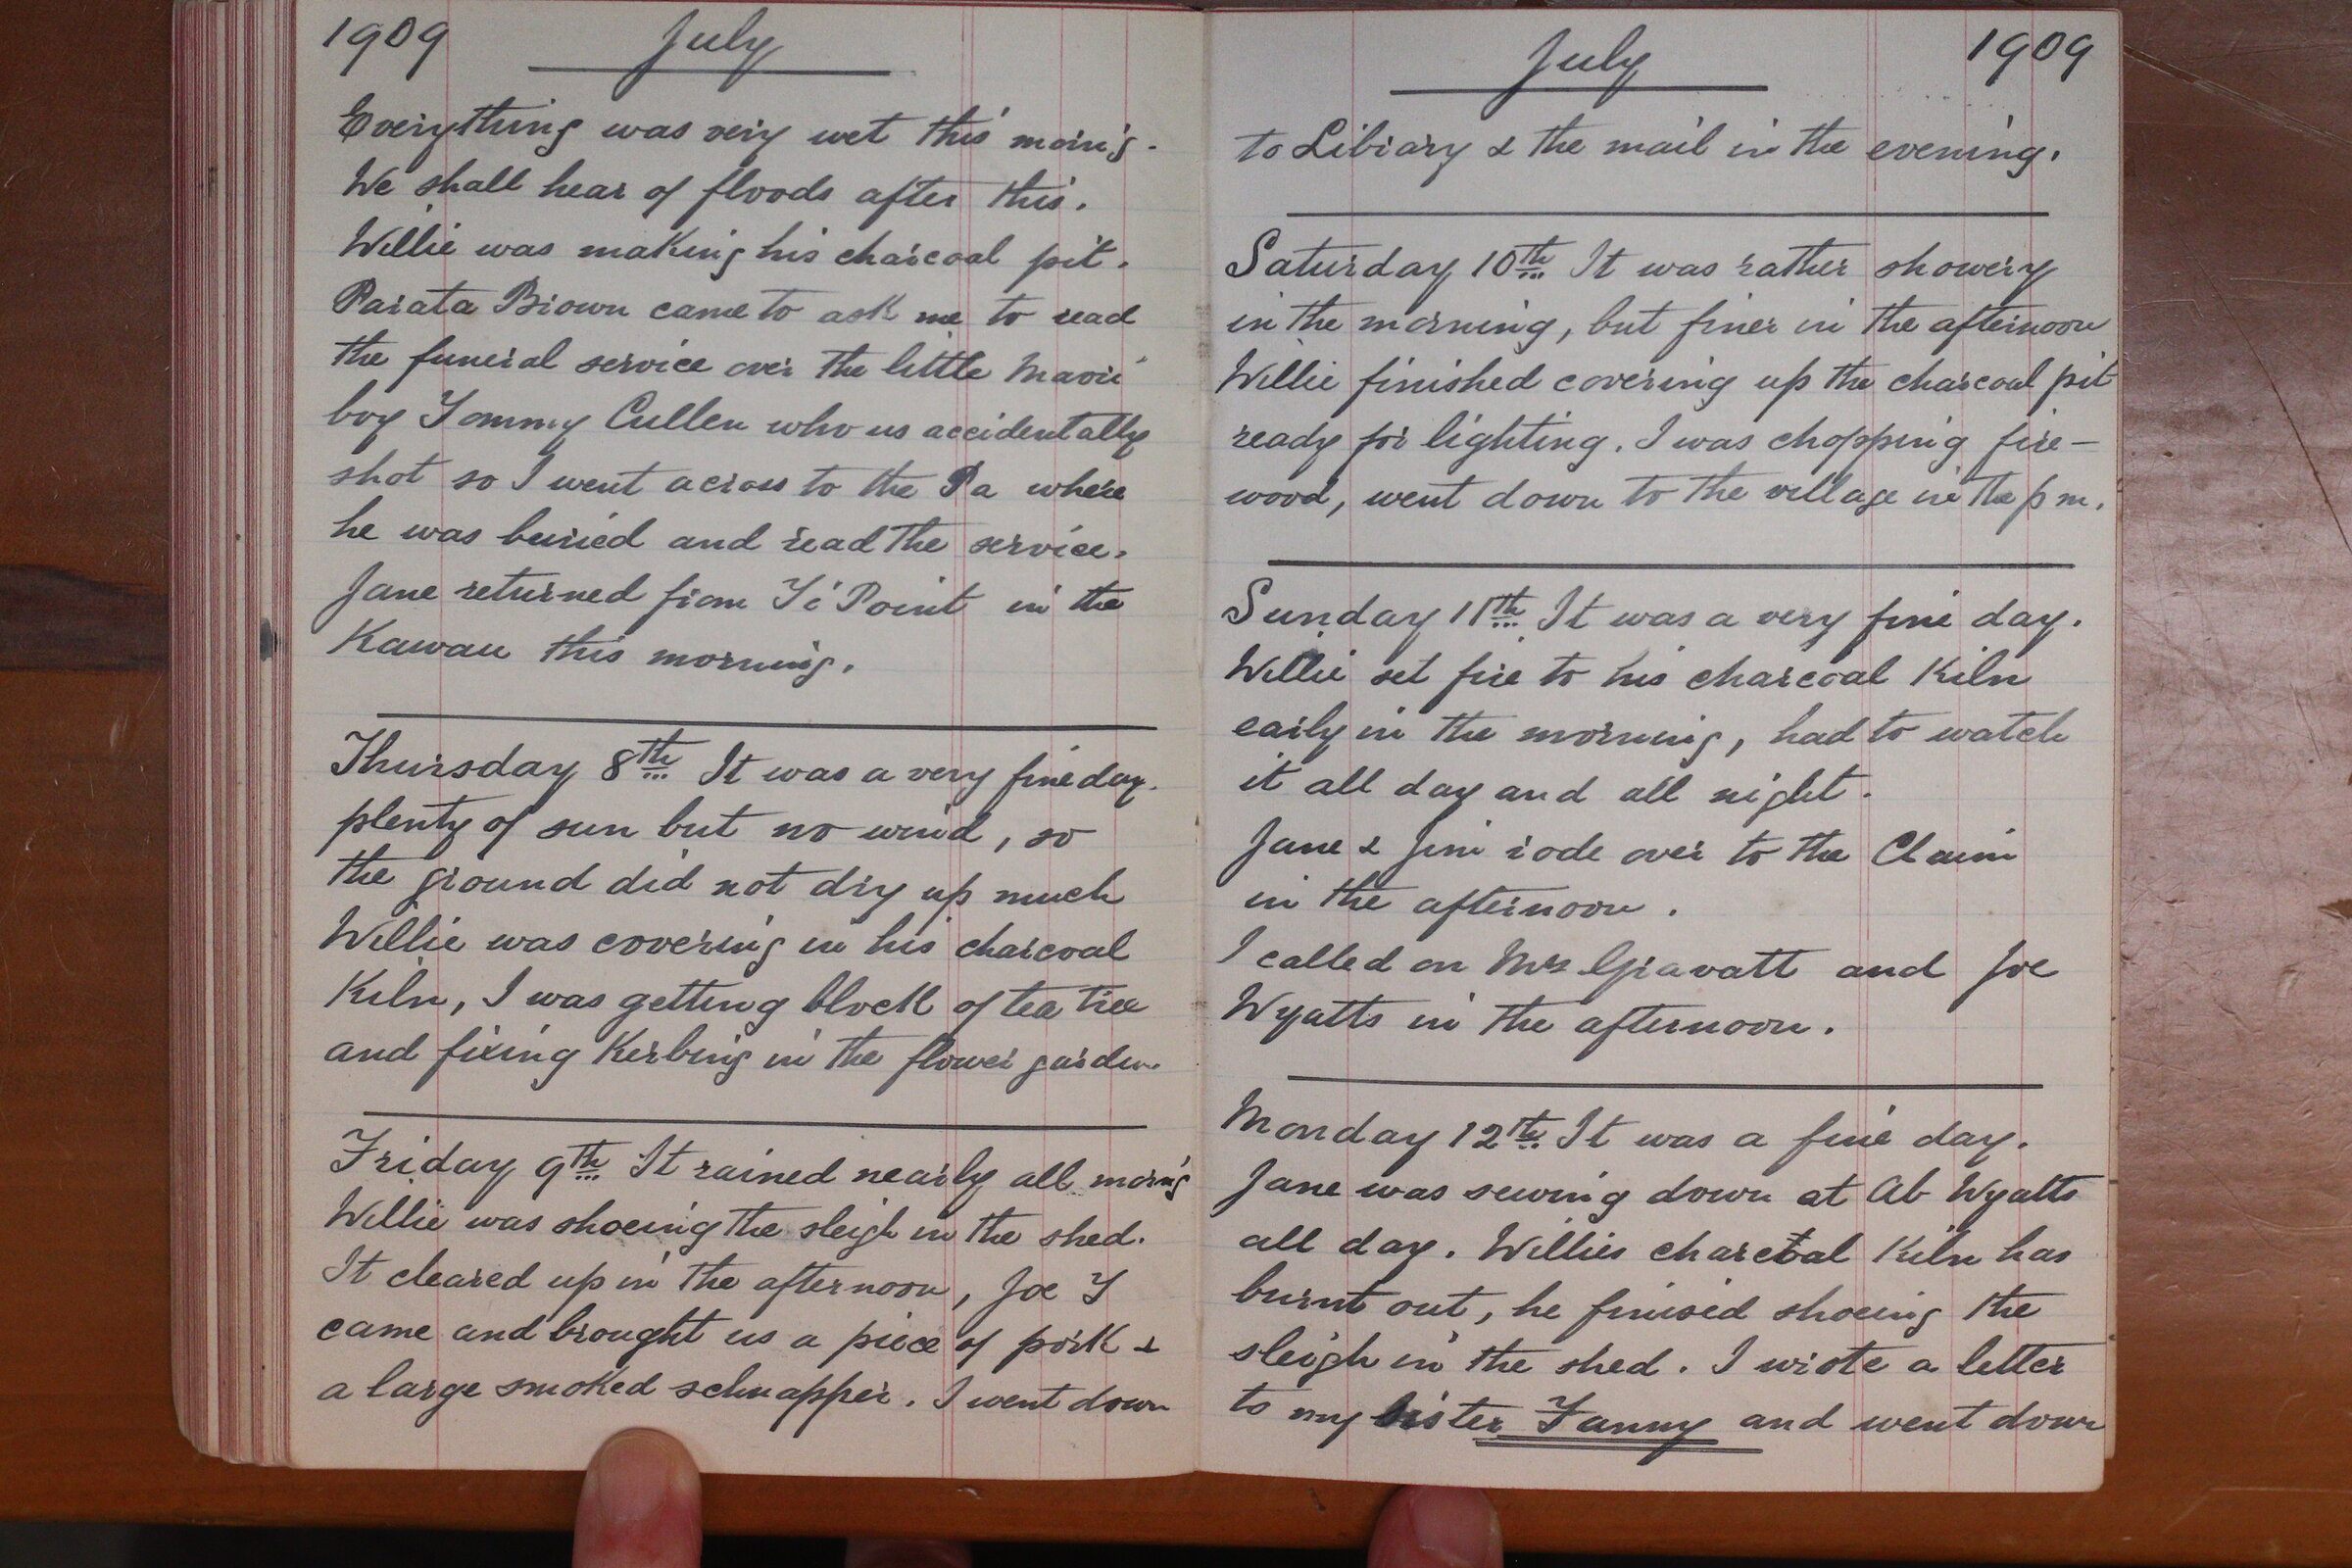 1909 July
Everything was very wet this morn'g.
We shall hear of floods after this.
Willie was making his charcoal pit.
Parata Brown came to ask me to read
the funeral service over the little Maori
boy Tommy Cullen who us accidentally
shot so I went across to the Pa where
he was buried and read the service.
Jane returned from Ti Point in the
Kawau this morning.
Thursday 8th It was a very fine day.
plenty of sun but no wind, so
the ground did not dry up much
Willie was covering in his charcoal
Kiln, I was getting block of tea tree
and fixing Kerbing in the flower garden.
Friday 9th It rained nearly all morn'g
Willie was shoeing the sleigh in the shed.
It cleared up in the afternoon, Joe T
came and brought us a piece of pork &
a large smoked schnapper. I went down
July 1909
to Library & the mail in the evening.
Saturday 10th It was rather showery
in the morning, but finer in the afternoon
Willie finished covering up the charcoal pit
ready for lighting. I was chopping fire-
wood, went down to the village in the pm.
Sunday 11th It was a very fine day.
Willie set fire to his charcoal Kiln
early in the morning, had to watch
it all day and all night.
Jane & Jim rode over to the Claim
in the afternoon.
I called on Mrs Gravatt and Joe
Wyatts in the afternoon.
Monday 12th It was a fine day.
Jane was sewing down at Ab Wyatts
all day. Willies charcoal Kiln has
burnt out, he finised shoeing the
sleigh in the shed. I wrote a letter
to my sister Fanny and went down